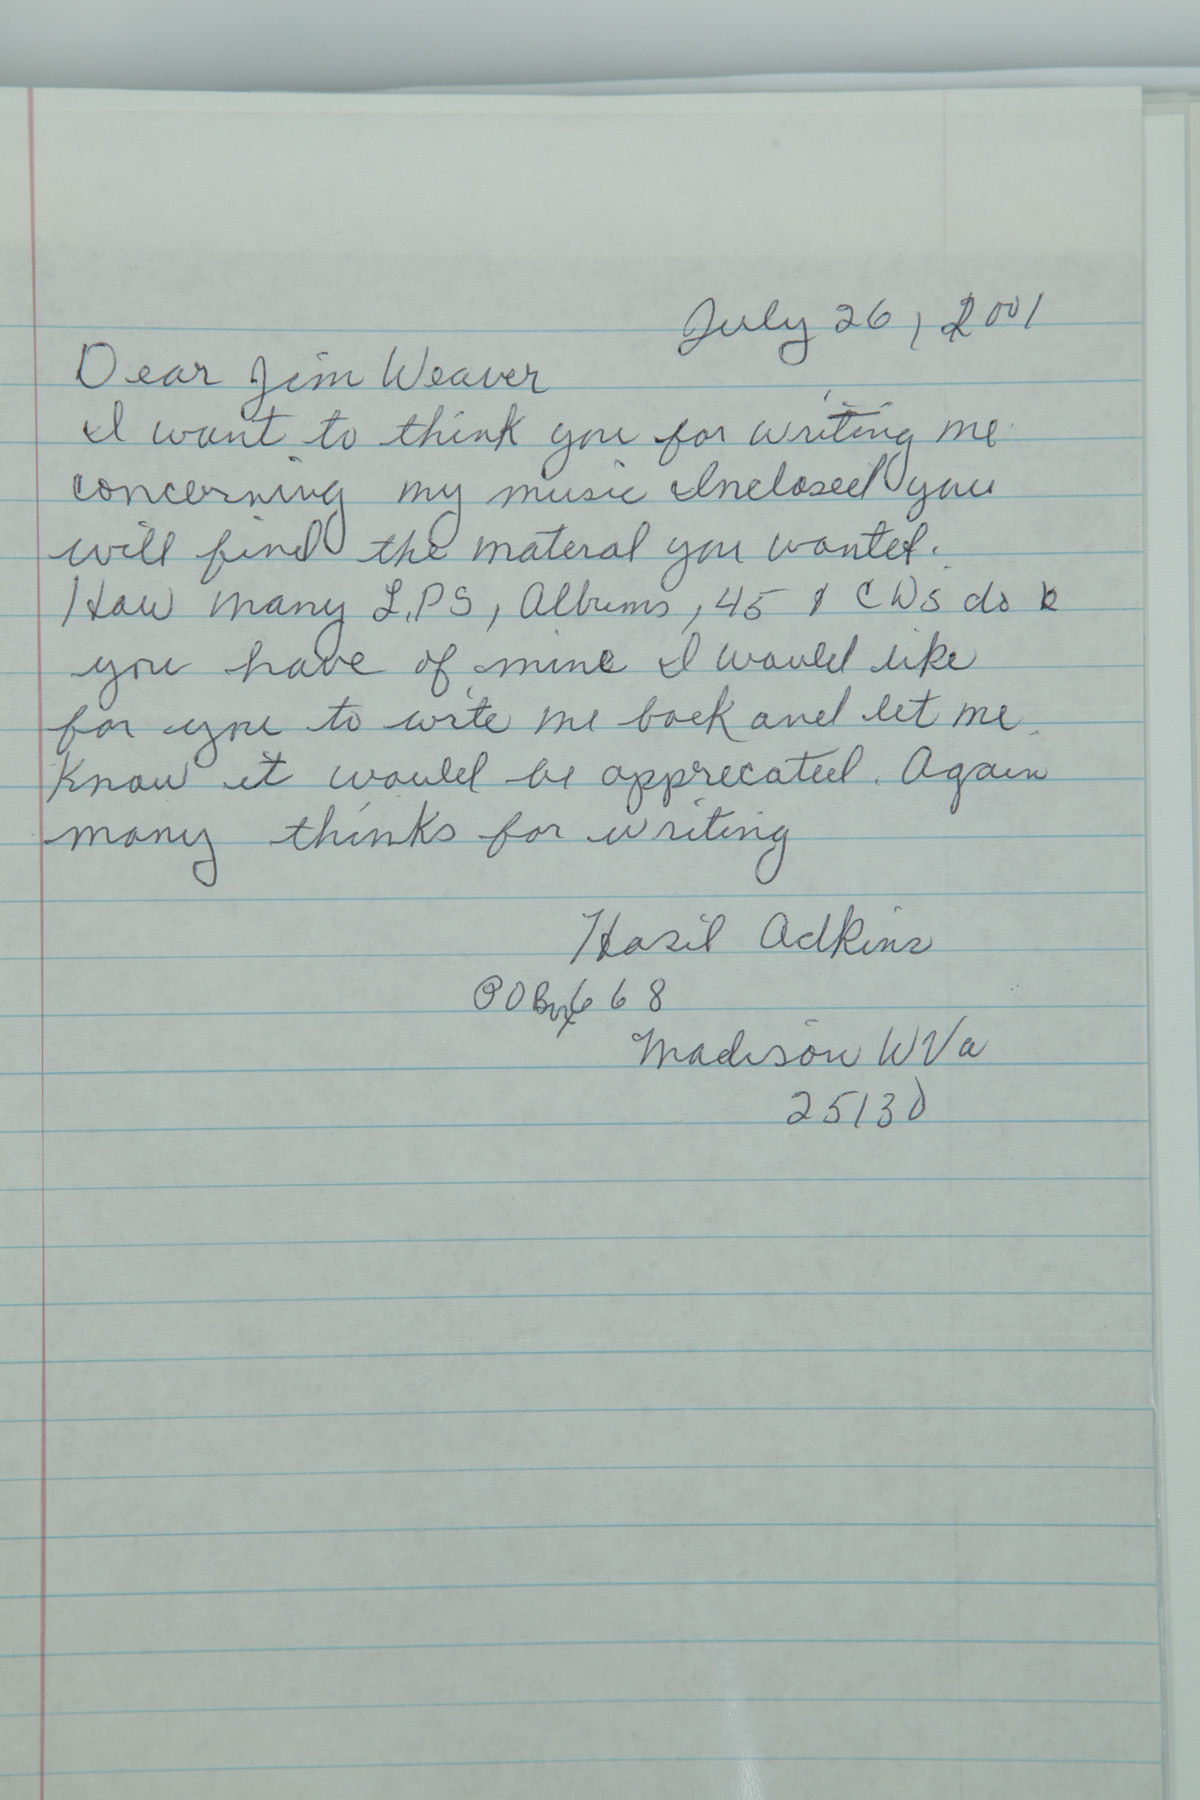 July 26, 2001
Dear Jim Weaver
I want to think you for writing me
concerning my music Inclosed you
will find the materal you wanted.
How many L.P.S, Albums, 45 & CDs do
you have of mine I would like
for you to write me back and let me
know it would be apprecated. Again
many thinks for writing
Hasil Adkins
PO Box 668
Madison WVa
25130